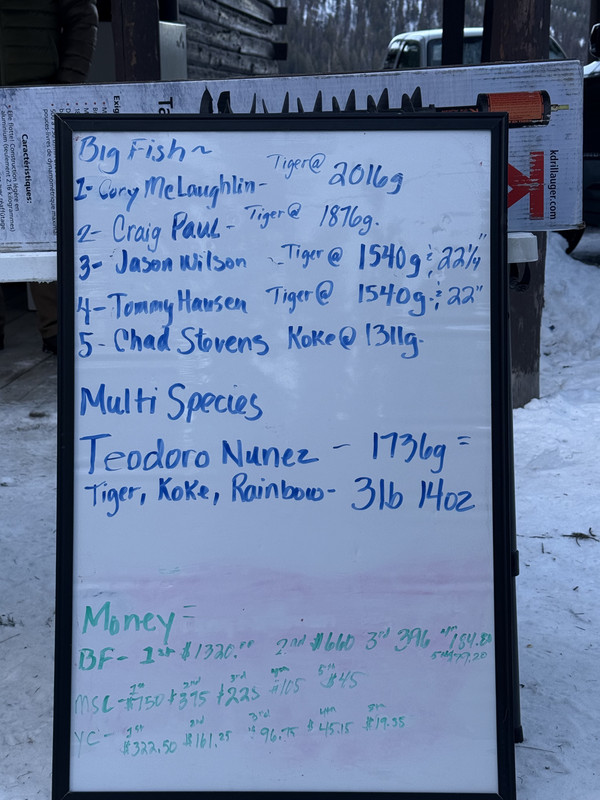 Big Fish ~
1- Cory McLaughlin - Tiger @ 2016g
2- Craig Paul - Tiger @ 1876g.
3- Jason Wilson - Tiger @ 1540g & 22 1/4"
4- Tommy Hansen Tiger @ 1540g. & 22"
5- Chad Stevens Koke @ 1311g.
Multi Species
Teodoro Nunez - 1736g =
Tiger, Koke, Rainbow - 3lb 14oz
Money =
BF - 1st $1320.00 2nd $660 3rd 396 4th 184.80
5th $79.20
MSC - 1st $750 2nd $375 3rd $225 4th $105 5th $45
YC - 1st $322.50 2nd $161.25 3rd $96.75 4th $45.15 5th $19.35
kdrillauger.com
Caractéristiques: